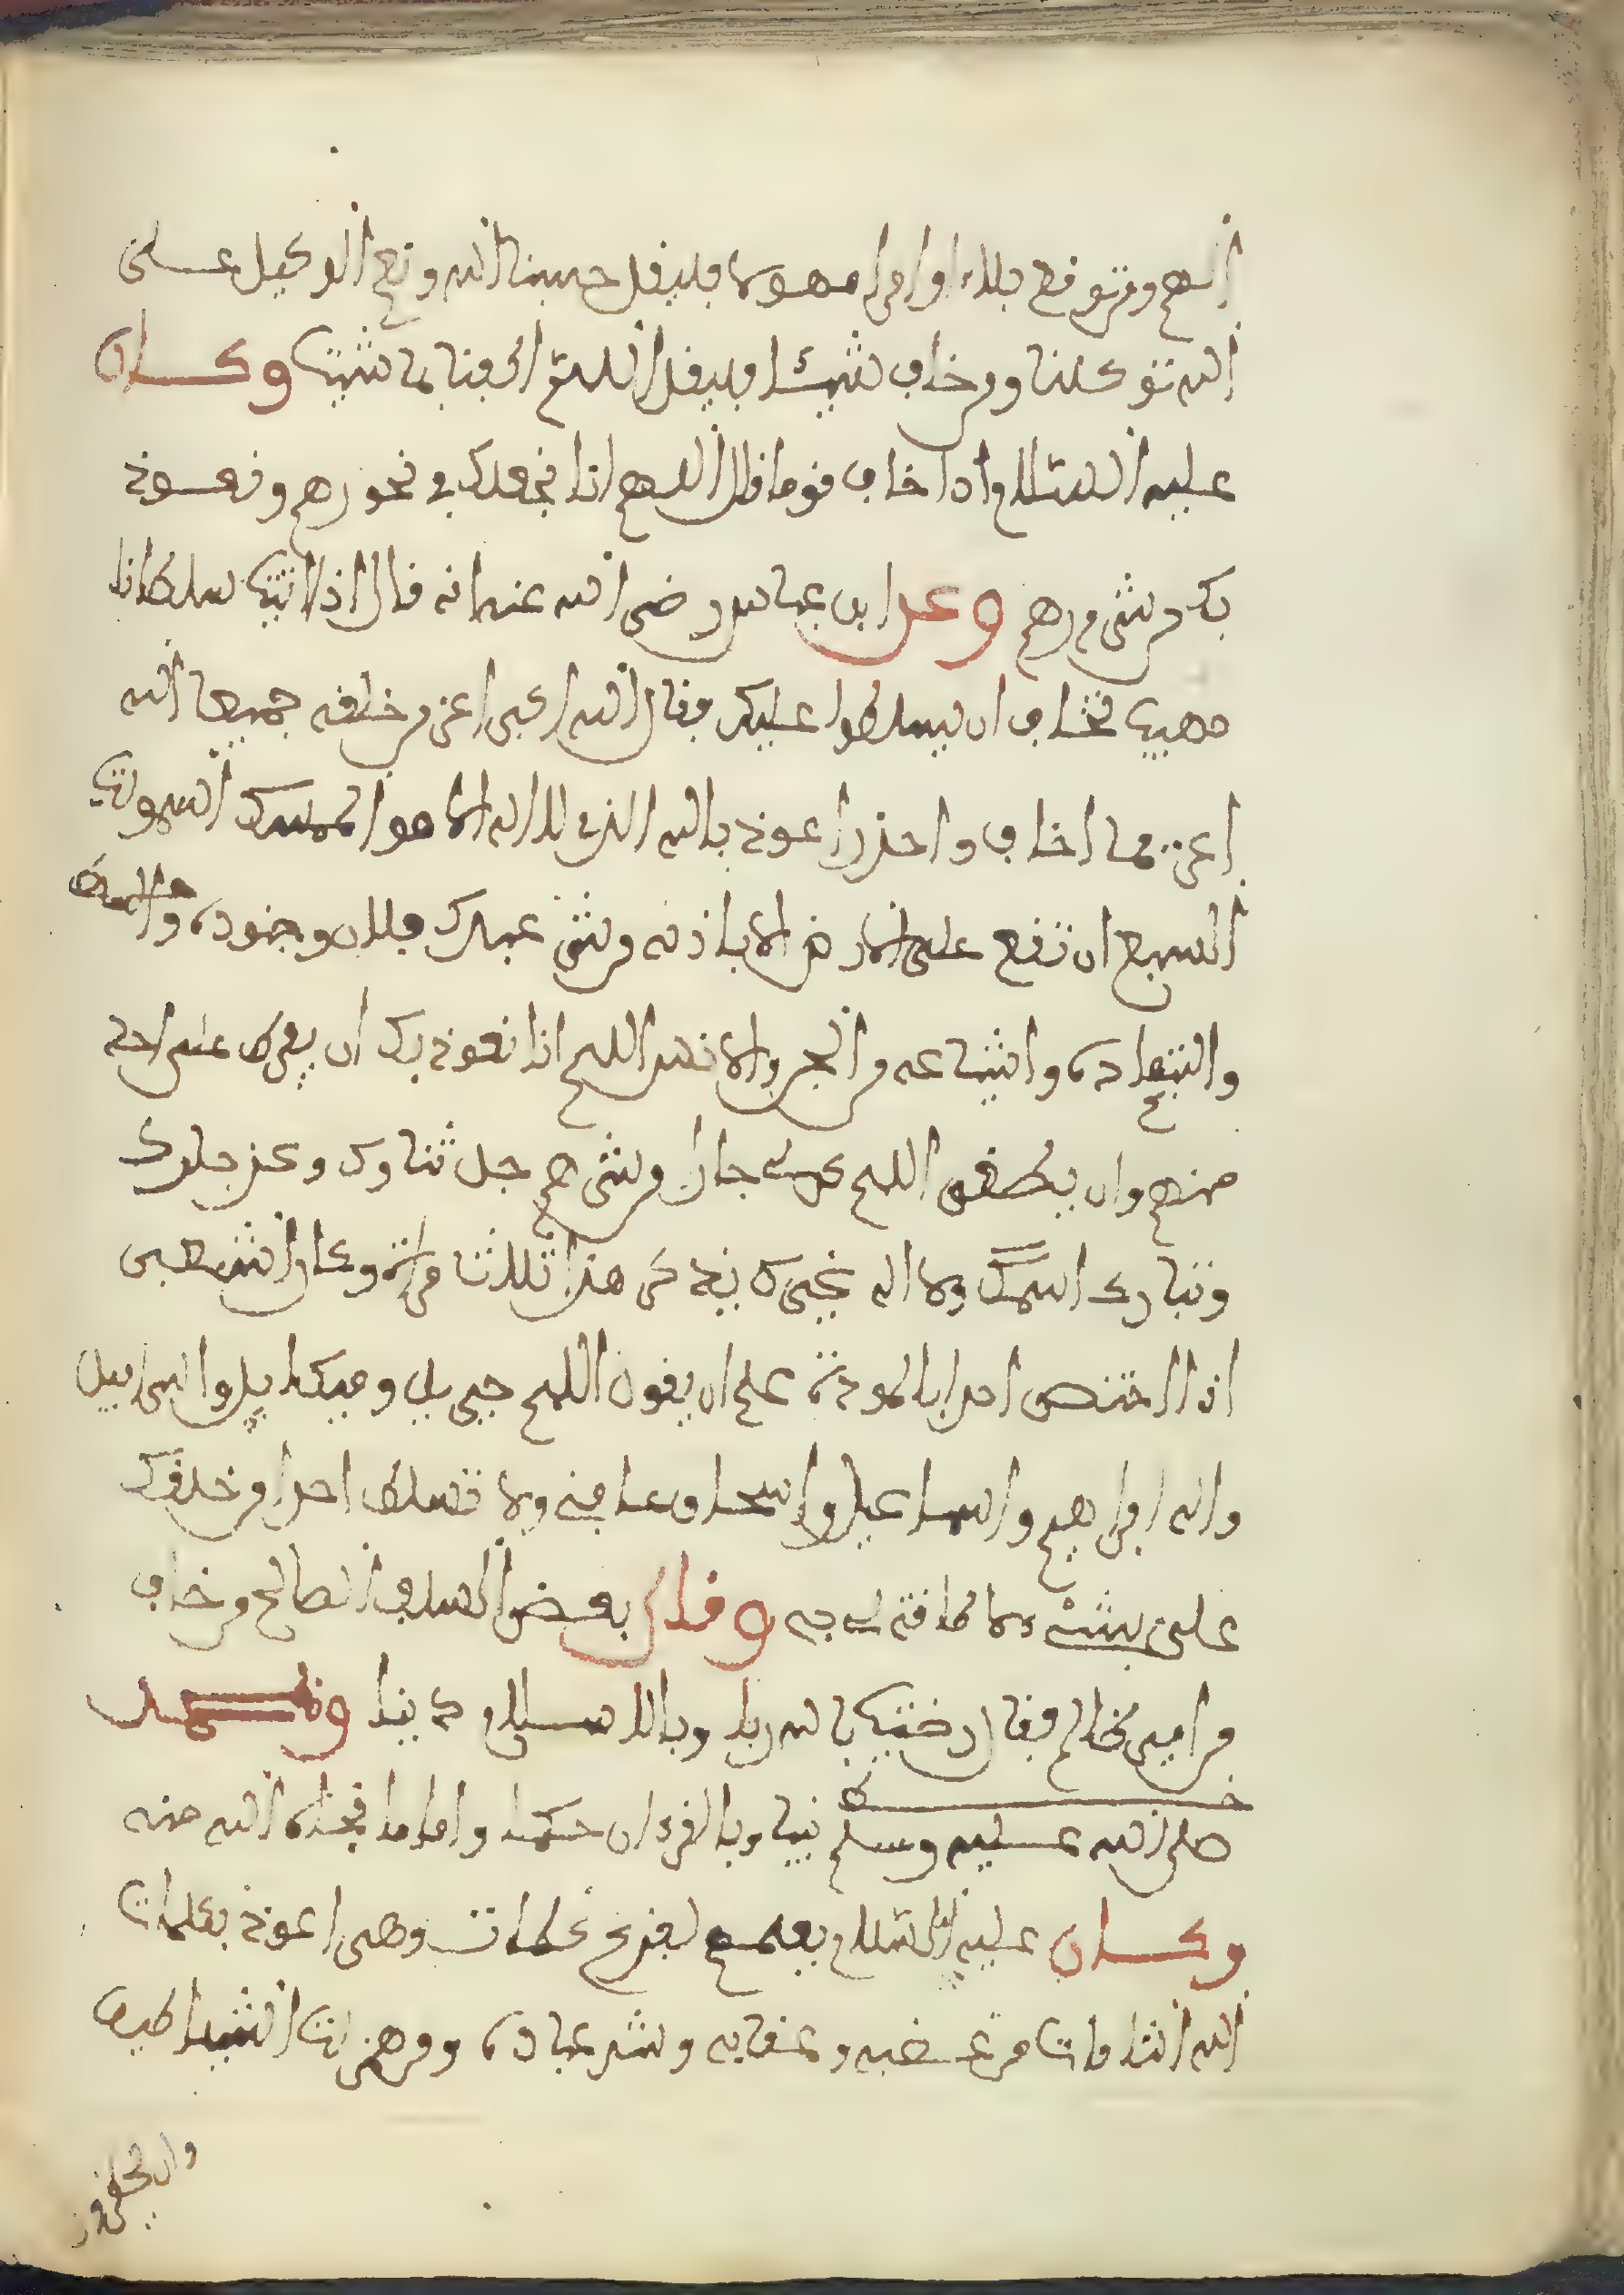 الهم ومن توقع بلاء او امرا مهولا فليقل حسبنا الله ونعم الوكيل على
الله توكلنا ومن خاف شيئا فليقل اللهم اكفنا بما شئت وكان
عليه السلام اذا خاف قوما قال اللهم انا نجعلك في نحورهم ونعوذ
بك من شرورهم وعن ابن عباس رضي الله عنهما انه قال اذا اتيت سلطانا
مهيبا تخاف ان يسطوا عليك فقل الله اكبر اعز من خلقه جميعا الله
اعز مما اخاف واحذر اعوذ بالله الذي لا اله الا هو الممسك السموات
السبع ان تقع على الارض الا باذنه من شر عبدك فلان وجنوده
واتباعه واشياعه من الجن والانس اللهم انا نعوذ بك ان يفرط على احد
منهم وان يطغى اللهم كن لي جارا من شرهم جل ثناوك وعز جارك
وتبارك اسمك ولا اله غيرك هذا ثلاث مرات وعن الشعبي
اذا احد ان يقول اللهم جبريل وميكايل واسرافيل
واله ابراهيم واسماعيل واسحاق عافني ولا تسلط احدا من خلقك
علي بشيء لا طاقة لي به وقال بعض السلف الصالح من خاف
من امير ظالم فقال رضيت بالله ربا وبالاسلام دينا وبمحمد
صلى الله عليه وسلم نبيا وبالقرءان حكما واماما نجاه الله منه
وكان عليه السلام يعلمهم لفزع كلمات وهي اعوذ بكلمات
الله التامات من غضبه وعقابه وشر عباده ومن همزات الشياطين
وان يحضرون